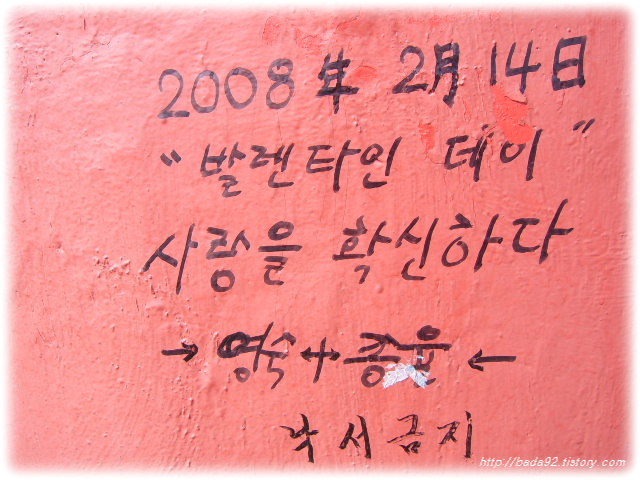 2008年 2月 14日
"발렌타인 데이"
사랑을 확신하다
→ 영숙 ↔ 종율 ←
낙서금지
http://bada92.tistory.com